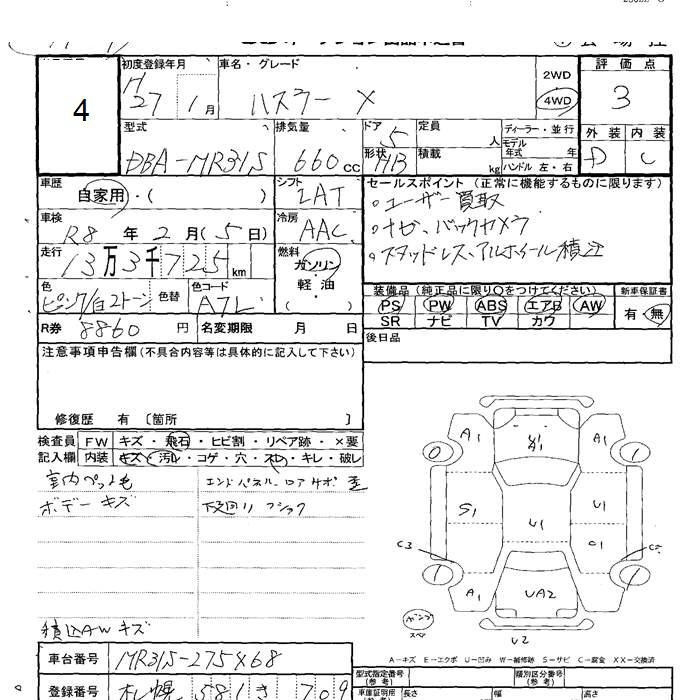 4
初度登録年月
H
27 1月
車名・グレード
ハスラー X
2WD
4WD
評価点
3
外装 内装
D C
型式
DBA-MR31S
排気量
660cc
ドア 5
形状 HB
定員 人
積載 kg
ディーラー・並行
モデル年式 年
ハンドル 左・右
車歴
自家用・( )
シフト
IAT
車検
R8 年 2 月 ( 5 日)
冷房
AAC
走行
13万3千725km
燃料
ガソリン
・
軽油
( )
色
ピンク/白2トーン
色替
色コード
A7L
R券 8860 円
名変期限 月 日
セールスポイント (正常に機能するものに限ります)
○ユーザー買取
○ナビ、バックカメラ
○スタッドレス、アルホイール積込
装備品 (純正品に限り○をつけてください)
PS PW ABS エアB AW
SR ナビ TV カワ
新車保証書
有・無
後日品
注意事項申告欄 (不具合内容等は具体的に記入して下さい)
修復歴 有 〔箇所 〕
検査員 FW キズ・飛石・ヒビ割・リペア跡・×要
記入欄 内装 キズ・汚レ・コゲ・穴・スレ・キレ・破レ
室内ペット毛
ボデー キズ
下廻り
積込AWキズ
A1 A1 A1
0 1
S1 U1 U1
C1
C3
1 1
A1 UA2 A1
U2
A-キズ E-エクボ U-凹み W-補修跡 S-サビ C-腐食 XX-交換済
車台番号 MR31S-275468
登録番号 581 さ 709
型式指定番号 (参考)
類別区分番号 (参考)
車庫証明用 (参考) 長さ 幅 高さ